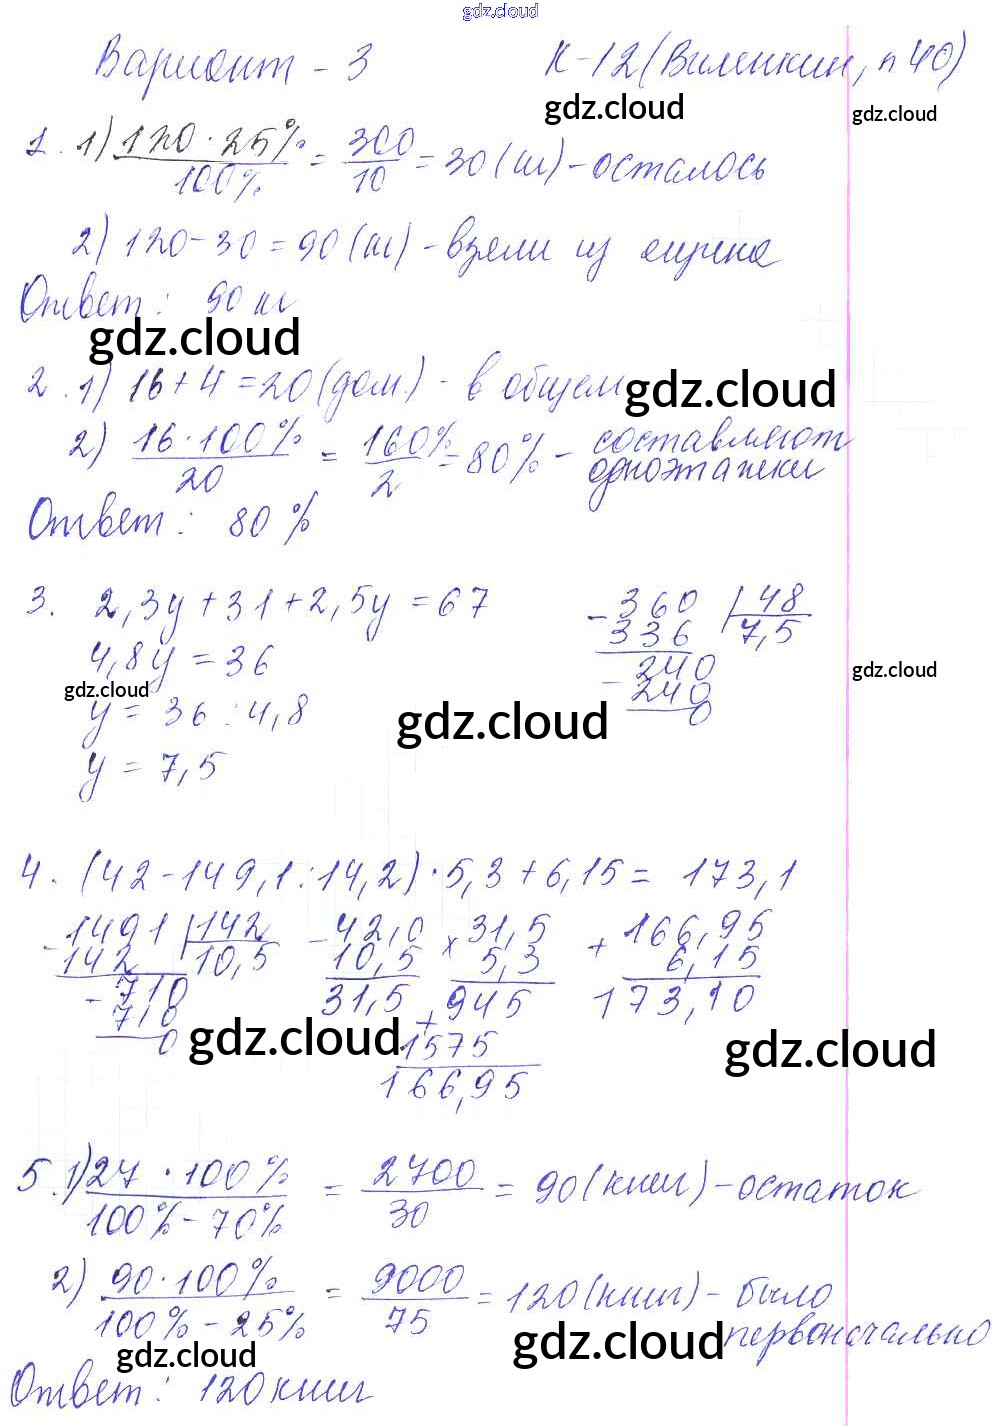 gdz.cloud
Вариант - 3 К-12 (Виленкин, п 40)
gdz.cloud gdz.cloud
1. 1) 120 · 25% / 100% = 300 / 10 = 30 (кг) - осталось
2) 120 - 30 = 90 (кг) - взяли из
Ответ: 90 кг
gdz.cloud
2. 1) 16 + 4 = 20 (дом.) - в общем
gdz.cloud
2) 16 · 100% / 20 = 160% / 2 = 80% - составляют одноэтажки
Ответ: 80%
3. 2,3y + 31 + 2,5y = 67
4,8y = 36
y = 36 : 4,8
y = 7,5
- 360 | 48
336 7,5
- 240
240
0
gdz.cloud gdz.cloud
gdz.cloud
4. (42 - 149,1 : 14,2) · 5,3 + 6,15 = 173,1
- 1491 | 142
142 10,5
- 710
710
0
- 42,0
10,5
31,5
× 31,5
5,3
+ 945
1575
166,95
+ 166,95
6,15
173,10
gdz.cloud gdz.cloud
5. 1) 27 · 100% / 100% - 70% = 2700 / 30 = 90 (книг) - остаток
2) 90 · 100% / 100% - 25% = 9000 / 75 = 120 (книг) - было первоначально
gdz.cloud gdz.cloud
Ответ: 120 книг